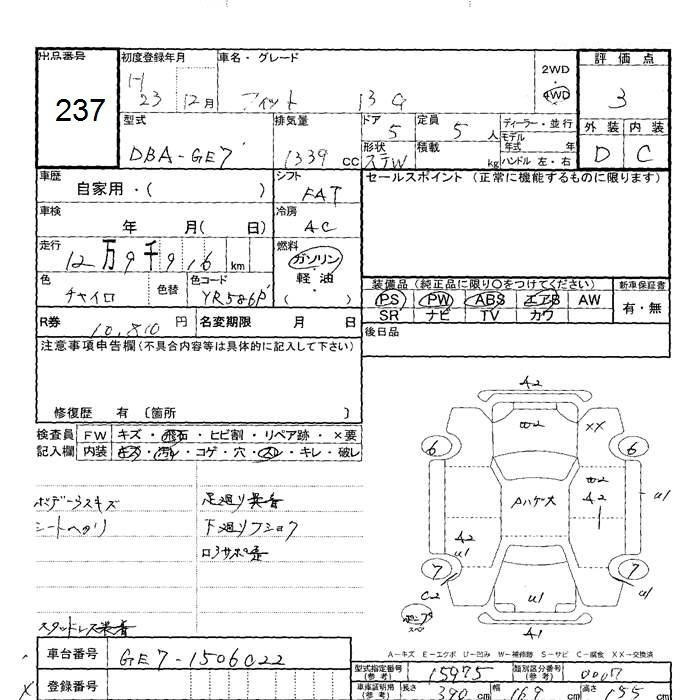 出品番号 初度登録年月 車名・グレード 2WD 評価点
237 H 23 12月 フィット 13G 4WD 3
型式 排気量 ドア 定員 ディーラー・並行 外装 内装
DBA-GE7 1339 cc 5 5 人 モデル年式 年 D C
形状 積載 kg ハンドル 左・右
STW
車歴 シフト セールスポイント (正常に機能するものに限ります)
自家用・( ) FAT
車検 冷房
年 月( 日) AC
走行 燃料
12万9千916 km ガソリン
軽油
( )
色 色替 色コード 装備品 (純正品に限り○をつけてください) 新車保証書
チャイロ YR586P PS PW ABS エアB AW 有・無
SR ナビ TV カワ
R券 10,810 円 名変期限 月 日 後日品
注意事項申告欄(不具合内容等は具体的に記入して下さい)
修復歴 有 〔箇所 〕
検査員 FW キズ・飛石・ヒビ割・リペア跡・×要
記入欄 内装 キズ・汚レ・コゲ・穴・スレ・キレ・破レ
ボデー3スキズ 足廻り錆
シートヘタリ 下廻り
スタッドレス
A2
U2 XX
6 6
Aハゲ大 U2
A2 U1
A2
U1
7 7
C2 U1
A1
A-キズ E-エクボ U-凹み W-補修跡 S-サビ C-腐食 XX-交換済
車台番号 GE7-1506022
型式指定番号(参考) 15975 類別区分番号(参考) 0007
登録番号
車庫証明用(参考) 長さ 390 cm 幅 169 cm 高さ 155 cm